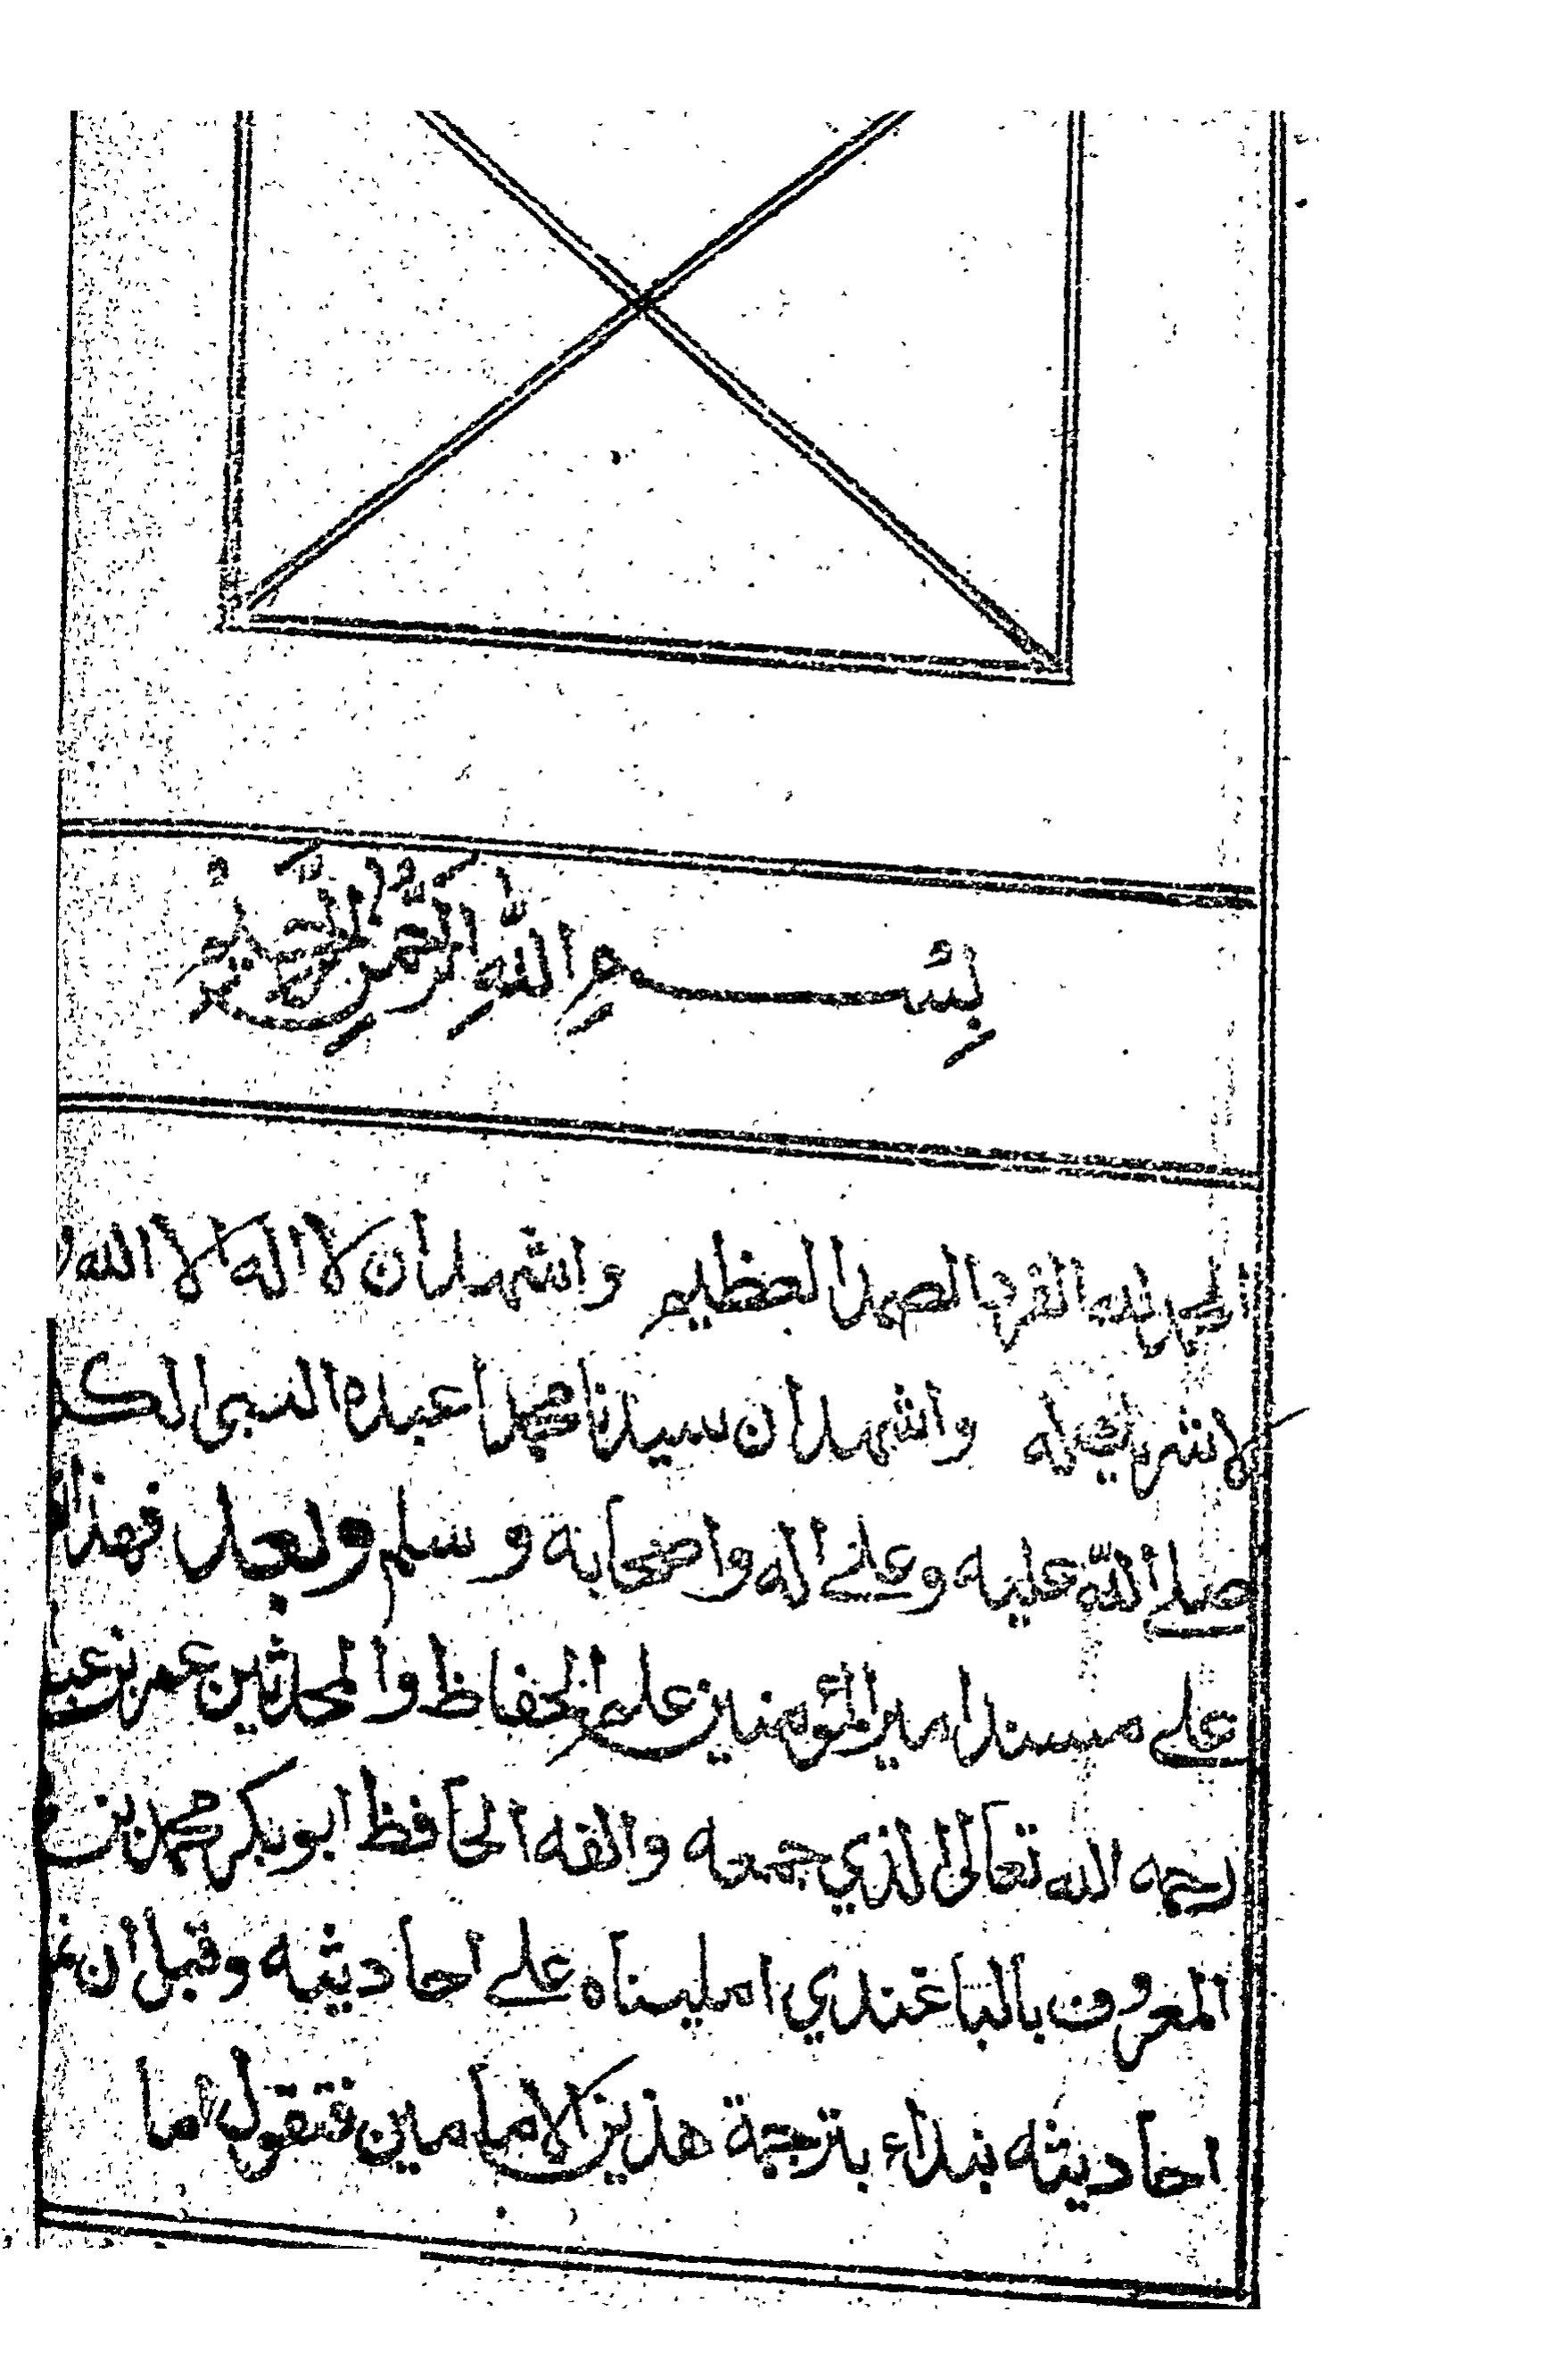 بِسْمِ اللهِ الرَّحْمٰنِ الرَّحِيْمِ
الحمد لله الفرد الصمد العظيم واشهد ان لا اله الا الله
لا شريك له واشهد ان سيدنا محمدا عبده النبى
صلے الله عليه وعلے اله واصحابه وسلم وبعد فهذا
علے مسند امير المؤمنين علم الحفاظ والمحدثين عمر بن
رحمه الله تعالى الذي جمعه والفه الحافظ ابوبكر محمد بن
المعروف بالباغندي امليناه علے احاديثه وقبل ان
احاديثه نبداء بترجمة هذين الامامين فنقول اما